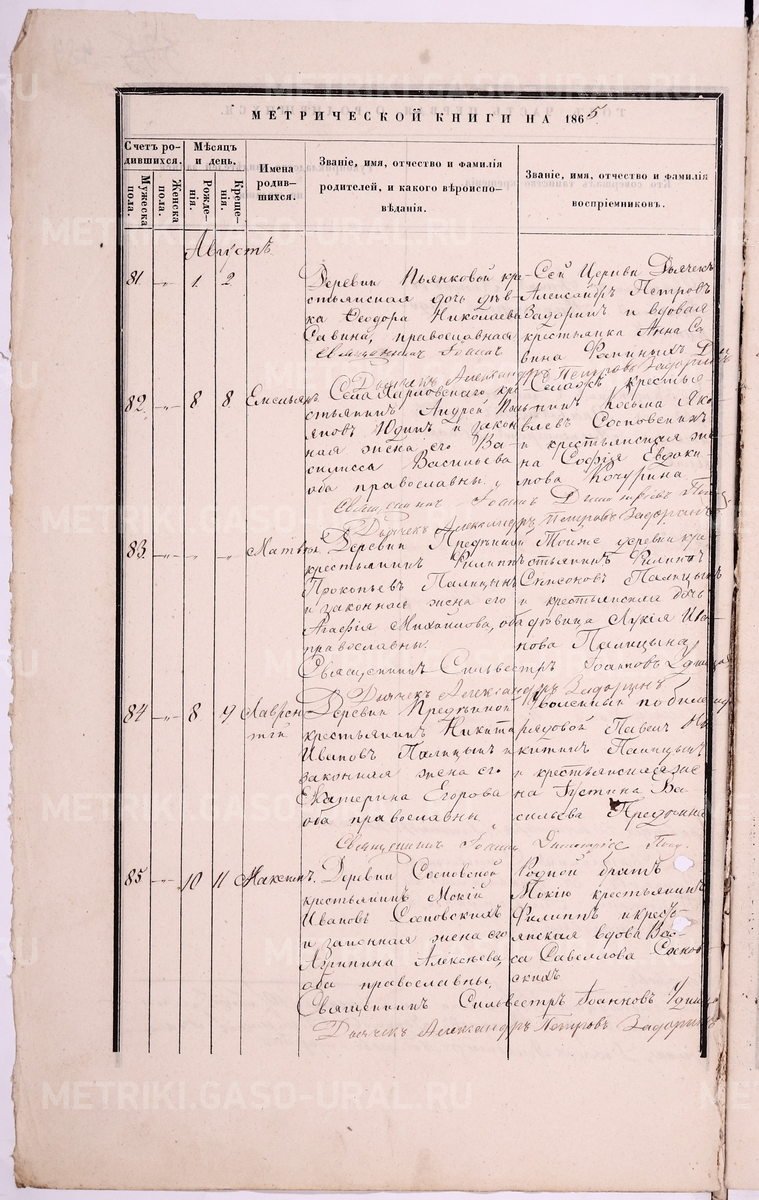 МЕТРИЧЕСКОЙ КНИГИ НА 1865
Счетъ родившихся.
Мужеска пола.
Женска пола.
Мѣсяцъ и день.
Рожденія.
Крещенія.
Имена родившихся.
Званіе, имя, отчество и фамилія родителей, и какого вѣроисповѣданія.
Званіе, имя, отчество и фамилія воспріемниковъ.
Августъ
81 „ 1 2
Деревни Пьянковой кре-
стьянская дочь дѣв-
ка Ѳеодора Николаева
Савина, православная
Сей Церкви Дьячекъ
Александръ Петровъ
Задоринъ и вдовая
крестьянка Анна Са-
вина
Священникъ Іоаннъ
Дьячекъ Александръ Петровъ Задоринъ
82 „ 8 8 Емельянъ
Села Харловскаго кре-
стьянинъ Андрей
Юдинъ и закон-
ная жена его Ва-
силисса Васильева
оба православны
Селаже крестья-
нинъ Косьма Яко-
влевъ Сосновскихъ
и крестьянская же-
на Софія Евдоки-
мова Кочурина
Священникъ Іоаннъ Димитріевъ Попо
Дьячекъ Александръ Петровъ Задоринъ
83 „ „ „ Матвѣй
Деревни
крестьянинъ Филиппъ
Прокопьевъ Палицынъ
и законная жена его
Агафія Михайлова, оба
православны.
Тойже деревни кре-
стьянинъ Филиппъ
Симеоновъ Палицынъ
и крестьянская дочь
дѣвица Лукія Ива-
нова Палицына
Священникъ Сильвестръ Іоанновъ Удинцо
Дьячекъ Александръ Задоринъ
84 „ 8 9 Лаврен-
тій
Деревни
крестьянинъ Никита
Ивановъ Палицынъ и
законная жена его
Екатерина Егорова
оба православны
Уволенный по билету
рядовой Павелъ Ни-
китинъ Палицынъ
и крестьянская же-
на Іустина Ва-
сильева
Священникъ Іоаннъ Димитріевъ Попо
85 „ 10 11 Максимъ.
Деревни Сосновской
крестьянинъ Мокій
Ивановъ Сосновскихъ
и законная жена его
Агрипина Алексѣева,
оба православны,
Родной братъ
Мокію крестьянинъ
Филиппъ и крест-
янская вдова Вас-
са Савеллова Соснов-
скихъ
Священникъ Сильвестръ Іоанновъ Удинцо
Дьячекъ Александръ Петровъ Задоринъ
METRIKI.GASO-URAL.RU